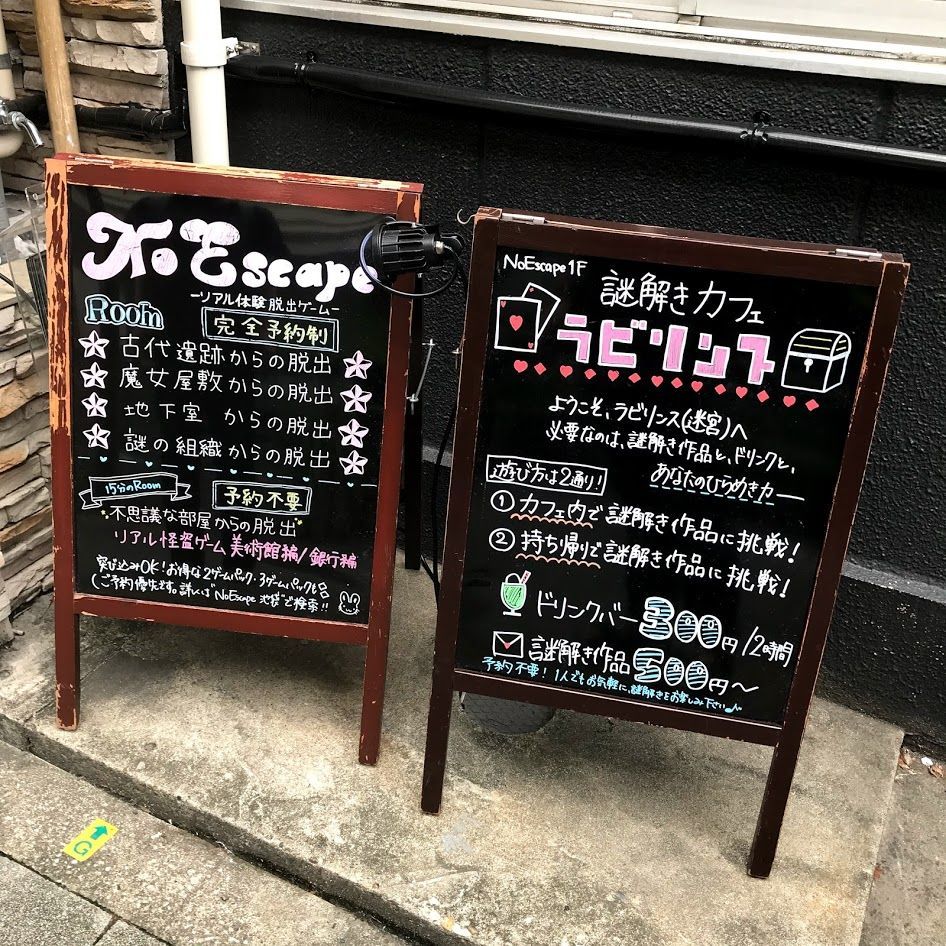 No Escape
ーリアル体験 脱出ゲームー
Room
完全予約制
古代遺跡からの脱出
魔女屋敷からの脱出
地下室 からの脱出
謎の組織からの脱出
15分のRoom
予約不要
不思議な部屋からの脱出
リアル怪盗ゲーム 美術館編/銀行編
飛び込みOK!お得な2ゲームパック・3ゲームパックも
(ご予約優先です。詳しくは"NoEscape 池袋"で検索!!
NoEscape 1F
謎解きカフェ
ラビリンス
ようこそ、ラビリンス(迷宮)へ
必要なのは、謎解き作品と、ドリンクと、
あなたのひらめき力ー
遊び方は2通り!
① カフェ内で謎解き作品に挑戦!
② 持ち帰りで謎解き作品に挑戦!
ドリンクバー 300円/2時間
謎解き作品 500円〜
予約不要! 1人でもお気軽に、謎解きをお楽しみ下さい♪
G